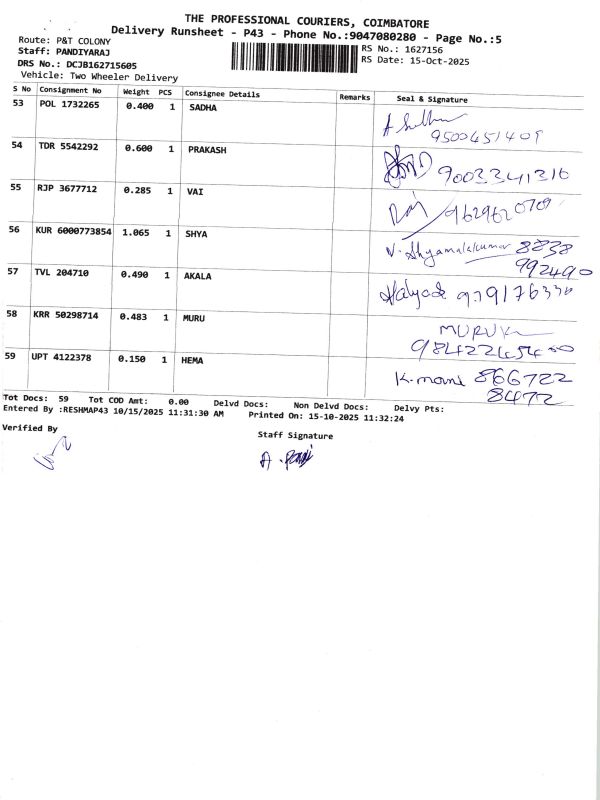 THE PROFESSIONAL COURIERS, COIMBATORE
Delivery Runsheet - P43 - Phone No.:9047080280 - Page No.:5
Route: P&T COLONY
RS No.: 1627156
Staff: PANDIYARAJ
RS Date: 15-Oct-2025
DRS No.: DCJB162715605
Vehicle: Two Wheeler Delivery
S No Consignment No Weight PCS Consignee Details Remarks Seal & Signature
53 POL 1732265 0.400 1 SADHA
9500451409
54 TDR 5542292 0.600 1 PRAKASH
9003341316
55 RJP 3677712 0.285 1 VAI
Raj 9629620709
56 KUR 6000773854 1.065 1 SHYA
V. Shyamalakumar 8238
992490
57 TVL 204710 0.490 1 AKALA
58 KRR 50298714 0.483 1 MURU
59 UPT 4122378 0.150 1 HEMA
K. mani 866722
8472
Tot Docs: 59 Tot COD Amt: 0.00 Delvd Docs: Non Delvd Docs: Delvy Pts:
Entered By :RESHMAP43 10/15/2025 11:31:30 AM Printed On: 15-10-2025 11:32:24
Verified By
Staff Signature